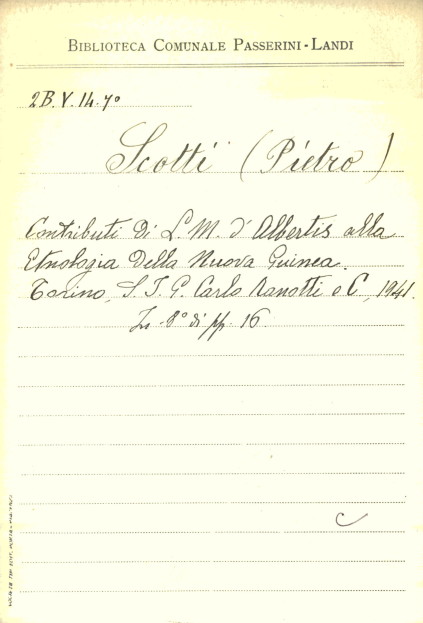 BIBLIOTECA COMUNALE PASSERINI-LANDI
2B.V.14.7°
Scotti (Pietro)
Contributi di L. M. d'Albertis alla
Etnologia della Nuova Guinea.
Torino, S. T. G. Carlo Ranotti e C, 1941.
In-8° di pp. 16
C